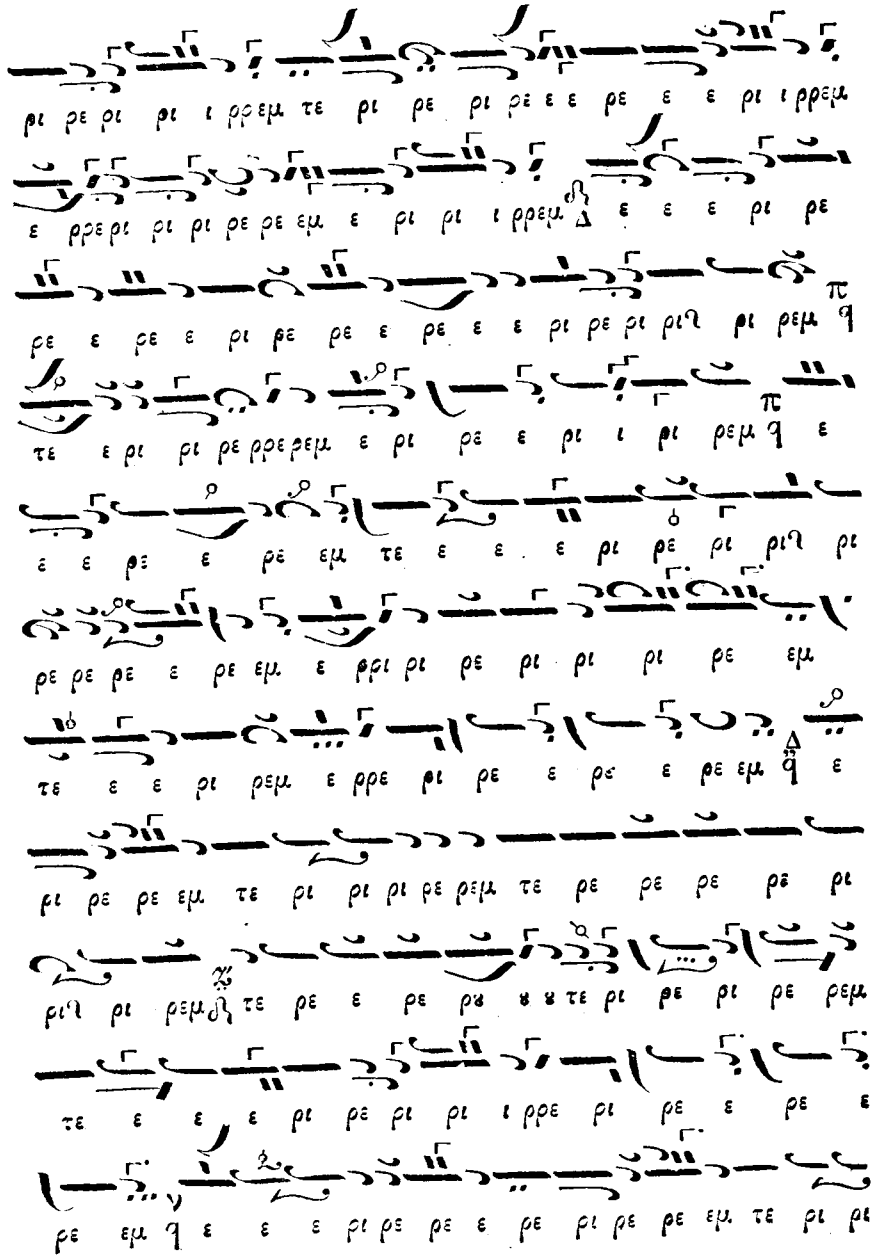 ρι ρε ρι ρι ι ρρεμ τε ρι ρε ρι ρε ε ε ρε ε ε ρι ι ρρεμ
ε ρρε ρι ρι ρι ρε ρε εμ ε ρι ρι ι ρρεμ Δ ε ε ε ρι ρε
ρε ε ρε ε ρι ρε ρε ε ρε ε ε ρι ρε ρι ρι ρι ρεμ π
τε ε ρι ρι ρε ρρε ρεμ ε ρι ρε ε ρι ι ρι ρεμ π ε
ε ε ρε ε ρε εμ τε ε ε ε ρι ρε ρι ρι ρι
ρε ρε ρε ε ρε εμ ε ρρι ρι ρε ρι ρι ρι ρε εμ
τε ε ε ρι ρεμ ε ρρε ρι ρε ε ρε ε ρε εμ Δ ε
ρι ρε ρε εμ τε ρι ρι ρι ρε ρεμ τε ρε ρε ρε ρε ρι
ρι ρι ρεμ τε ρε ε ρε ρȣ ȣ ȣ τε ρι ρε ρι ρε ρεμ
τε ε ε ε ρι ρε ρι ρι ι ρρε ρι ρε ε ρε ε
ρε εμ ν ε ε ε ρι ρε ρε ε ρε ρι ρε ρε εμ τε ρι ρι